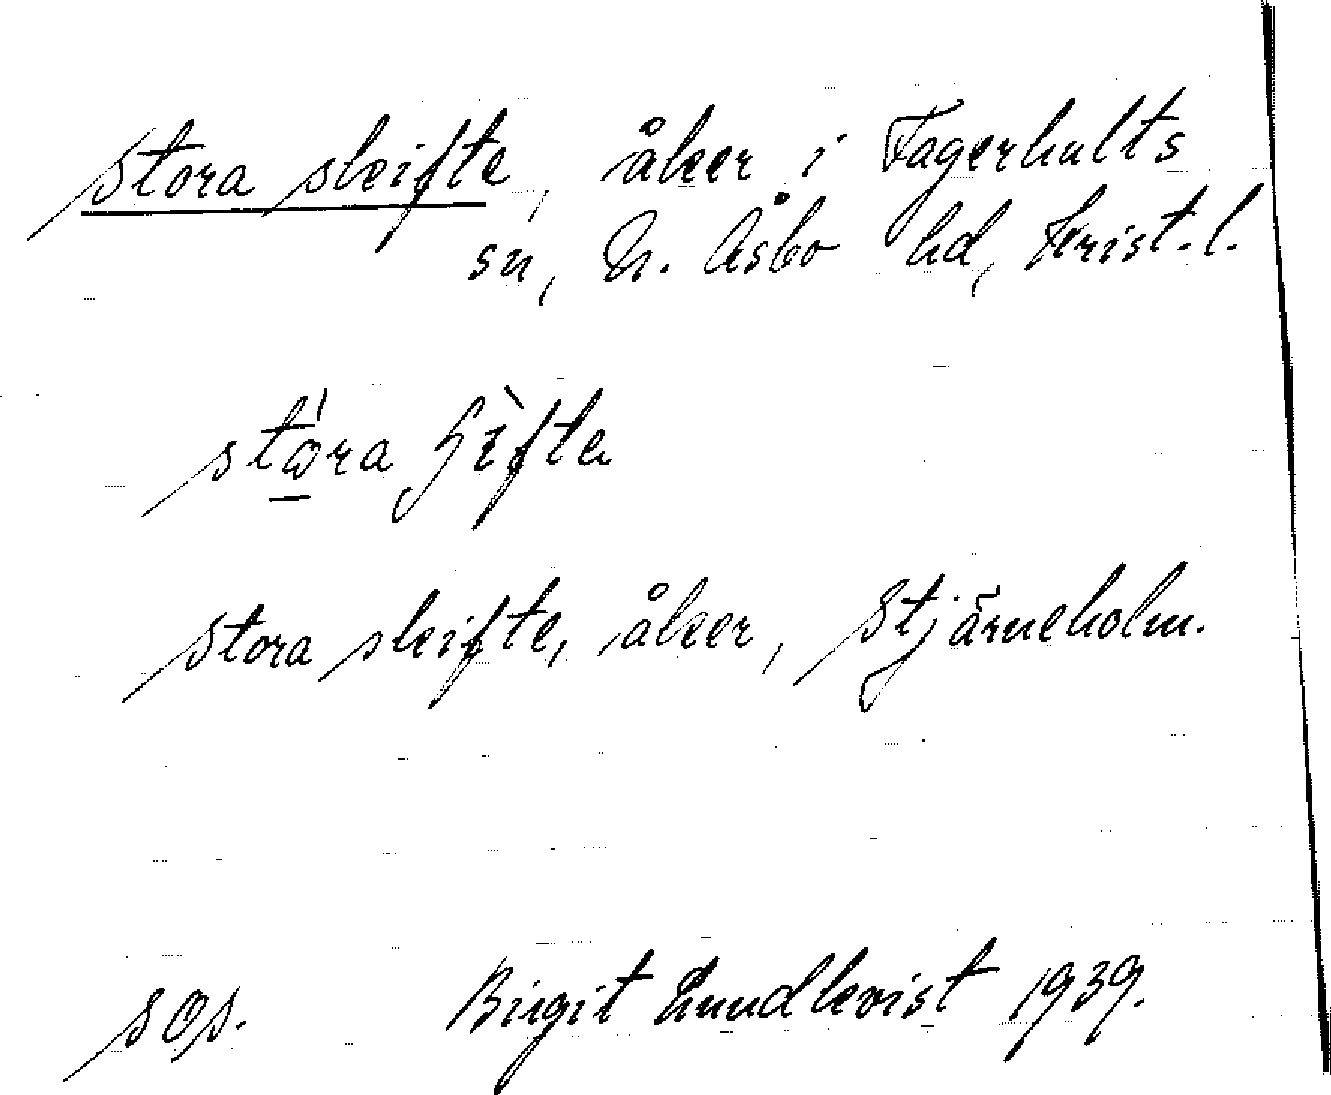 Stora skifte, åker i Fagerhults
sn, N. Åsbo hd, Krist. l.
Stora skifte, åker, Stjärneholm.
Birgit Lundkvist 1939.